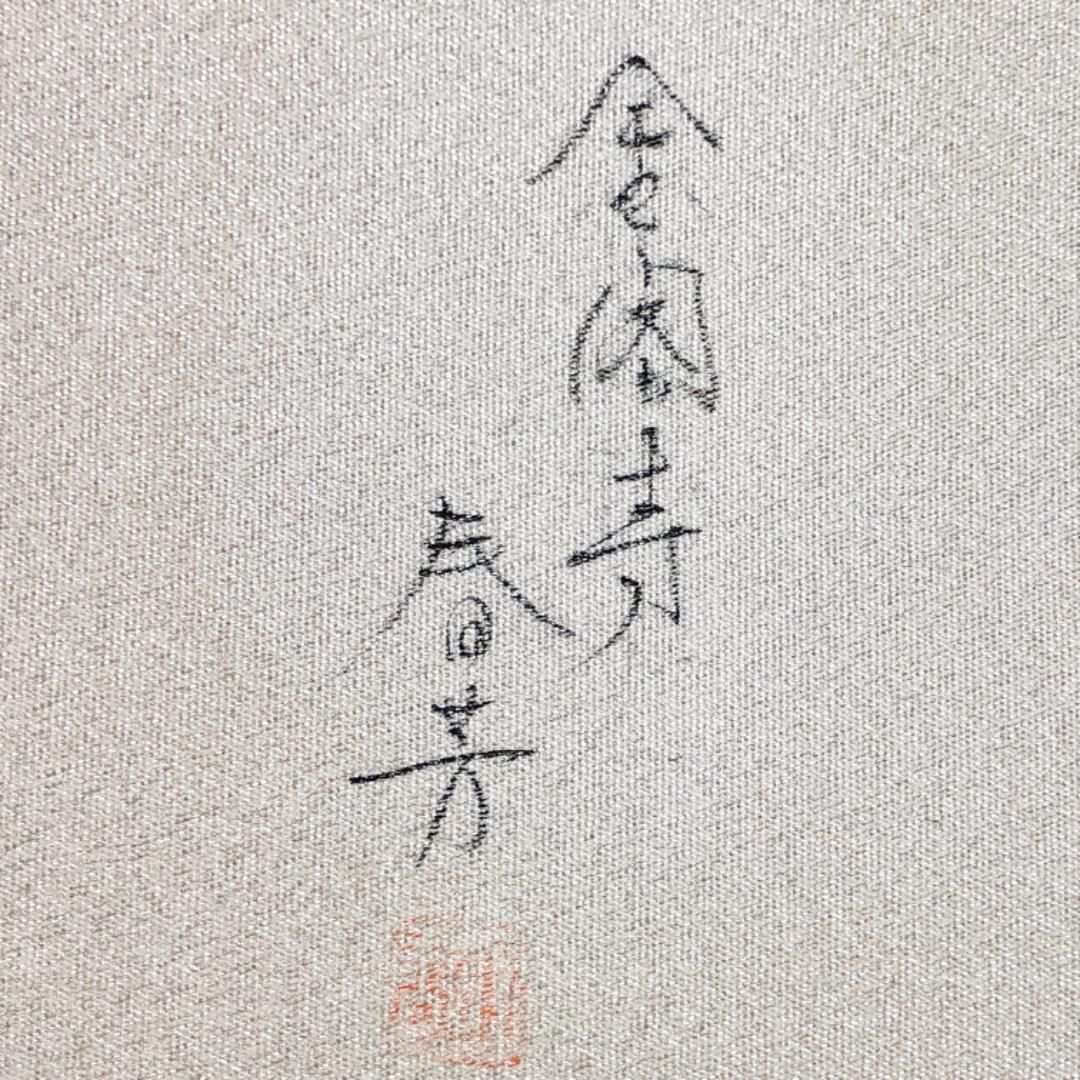 金閣寺
春芳